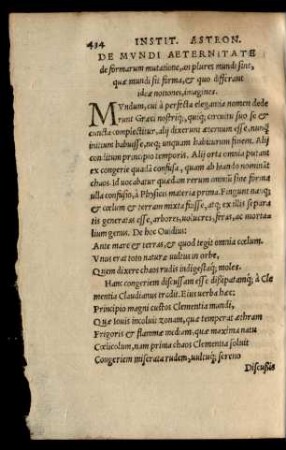 434 INSTIT. ASTRON.
DE MVNDI AETERNITATE
de formarum mutatione, an plures mundi sint,
quæ mundi sit forma, & quo differant
ideæ notiones, imagines.
MVndum, cui à perfecta elegantia nomen dede
runt Græci nostriq;, quiq; circuitu suo se &
cuncta complectitur, alij dixerunt æternum esse, nunq̃
initium habuisse, neq; unquam habiturum finem. Alij
conditum principio temporis. Alij orta omnia putant
ex congerie quadã confusa, quam ab hiando nominãt
chaos Id uocabatur quædam rerum omniũ sine forma
ulla confusio, à Physicis materia prima. Fingunt nãq;
& cœlum & terram mixta fuisse, atq; ex illis separa
tis generatas esse, arbores, uolucres, feras, ac morta
lium genus. De hoc Ouidius:
Ante mare & terras, & quod tegit omnia cœlum.
Vnus erat toto naturæ uultus in orbe,
Quem dixere chaos rudis indigestaq; moles.
Hanc congeriem discussam esse dissipatamq; à Cle
mentia Claudianus tradit. Eius uerba hæc:
Principio magni custos Clementia mundi,
Quæ Iouis incoluit zonam, quæ temperat æthram
Frigoris & flammæ mediam, quæ maxima natu
Cœlicolum, nam prima chaos Clementia soluit
Congeriem miserata rudem, uultuq; sereno
Discussis